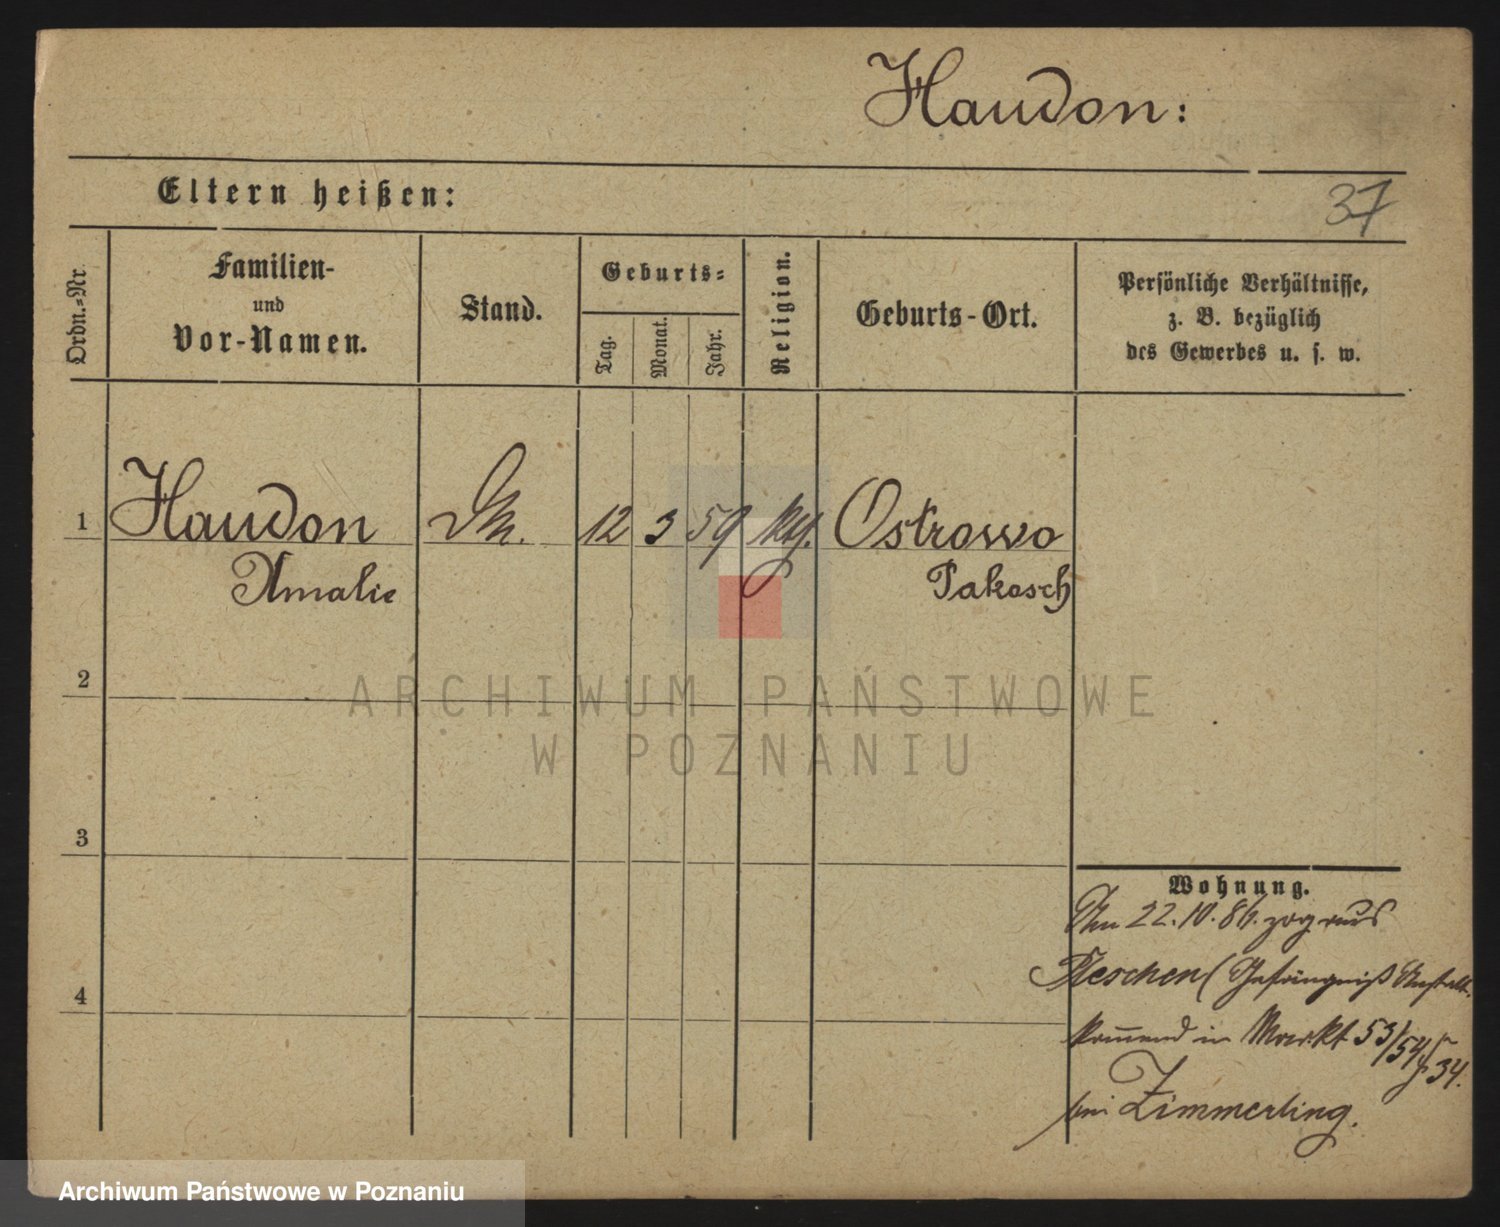 Haudon:
Eltern heißen:
37
Ordn.=Nr.
Familien-
und
Vor-Namen.
Stand.
Geburts=
Tag.
Monat.
Jahr.
Religion.
Geburts-Ort.
Persönliche Verhältnisse,
z. B. bezüglich
des Gewerbes u. s. w.
1 Haudon 12 3 59 Ostrowo
Amalie Pakosch
2
3
4
Wohnung.
Am 22.10.86. zog aus
Pleschen (Gefängniß Anstalt
kommend in Markt 53/54
34.
bei Zimmerling.
ARCHIWUM PAŃSTWOWE
W POZNANIU
Archiwum Państwowe w Poznaniu